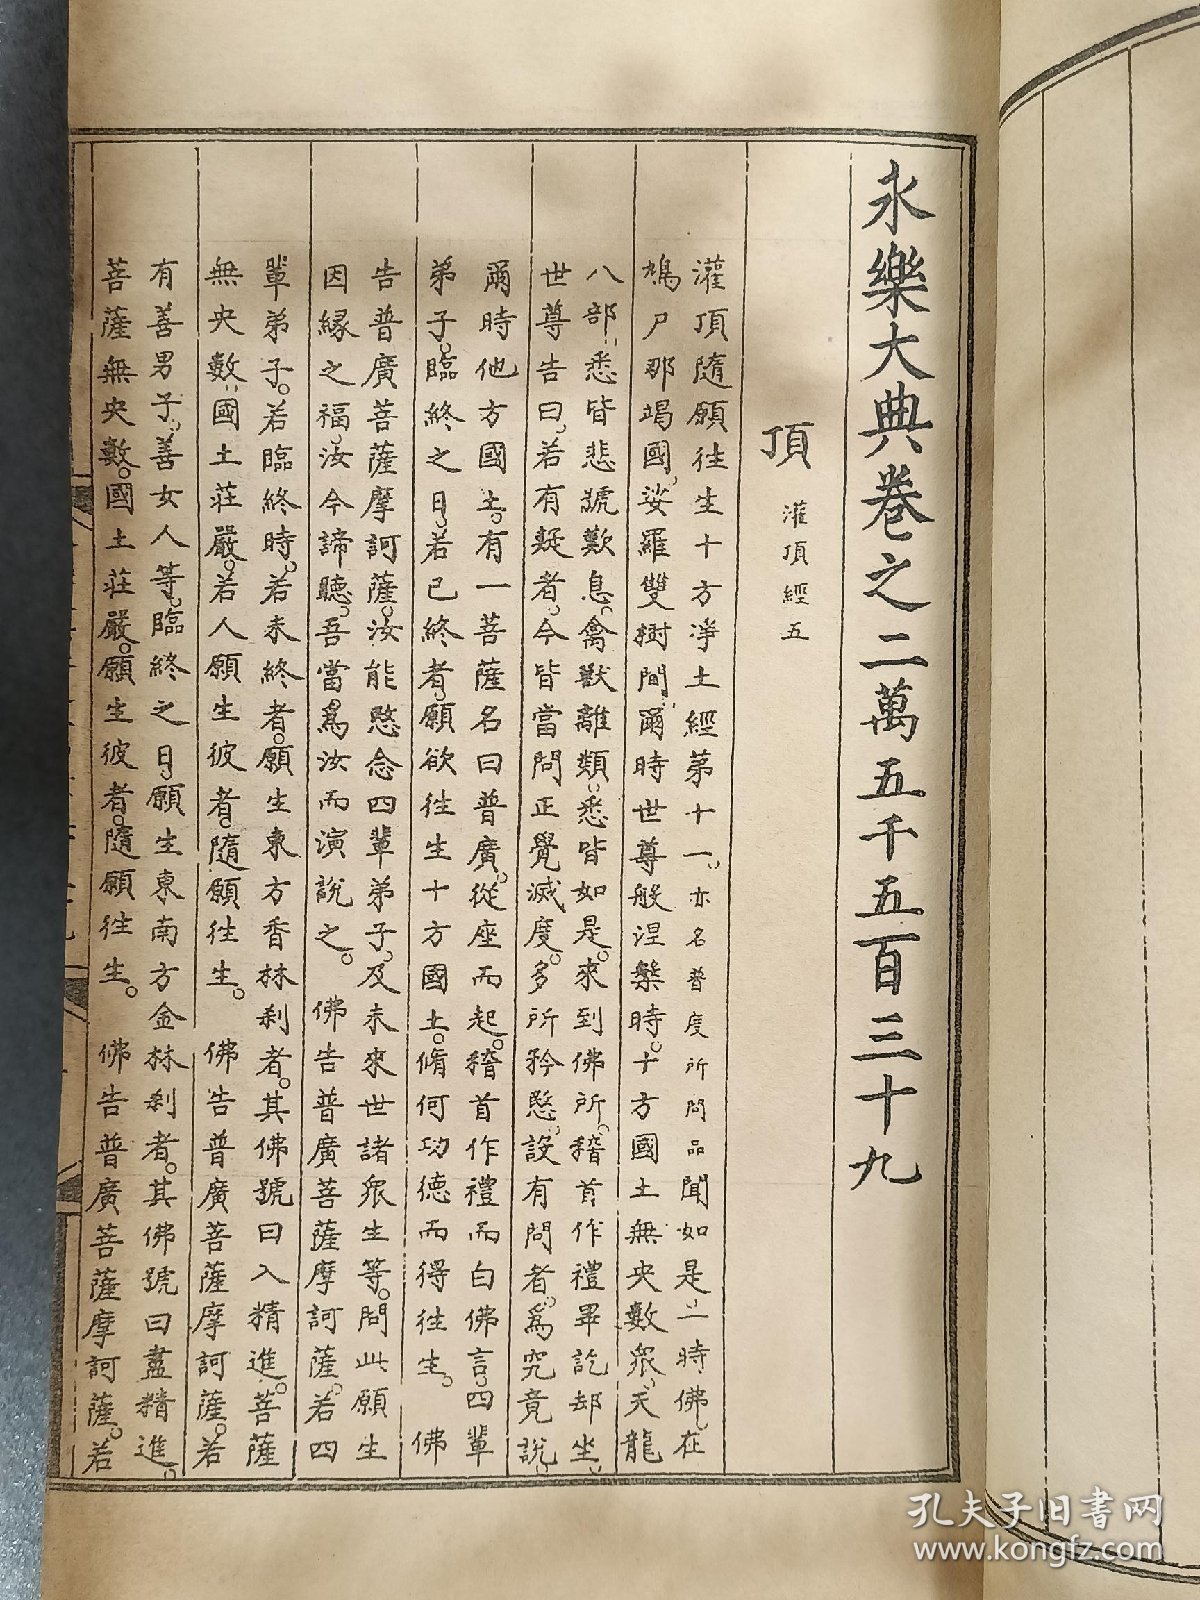 永樂大典卷之二萬五千五百三十九
頂 灌頂經五
灌頂隨願往生十方淨土經第十一亦名普度所問品聞如是一時佛在
鳩尸那竭國娑羅雙樹間爾時世尊般涅槃時十方國土無央數眾天龍
八部悉皆悲號歎息禽獸離類悉皆如是來到佛所稽首作禮畢訖却坐
世尊告曰若有疑者今皆當問正覺滅度多所矜愍設有問者為究竟說
爾時他方國土有一菩薩名曰普廣從座而起稽首作禮而白佛言四輩
弟子臨終之日若已終者願欲往生十方國土脩何功德而得往生 佛
告普廣菩薩摩訶薩汝能愍念四輩弟子及未來世諸眾生等問此願生
因緣之福汝今諦聽吾當為汝而演說之 佛告普廣菩薩摩訶薩若四
輩弟子若臨終時若未終者願生東方香林剎者其佛號曰入精進菩薩
無央數國土莊嚴若人願生彼者隨願往生 佛告普廣菩薩摩訶薩若
有善男子善女人等臨終之日願生東南方金林剎者其佛號曰盡精進
菩薩無央數國土莊嚴願生彼者隨願往生 佛告普廣菩薩摩訶薩若
孔夫子旧书网
www.kongfz.com